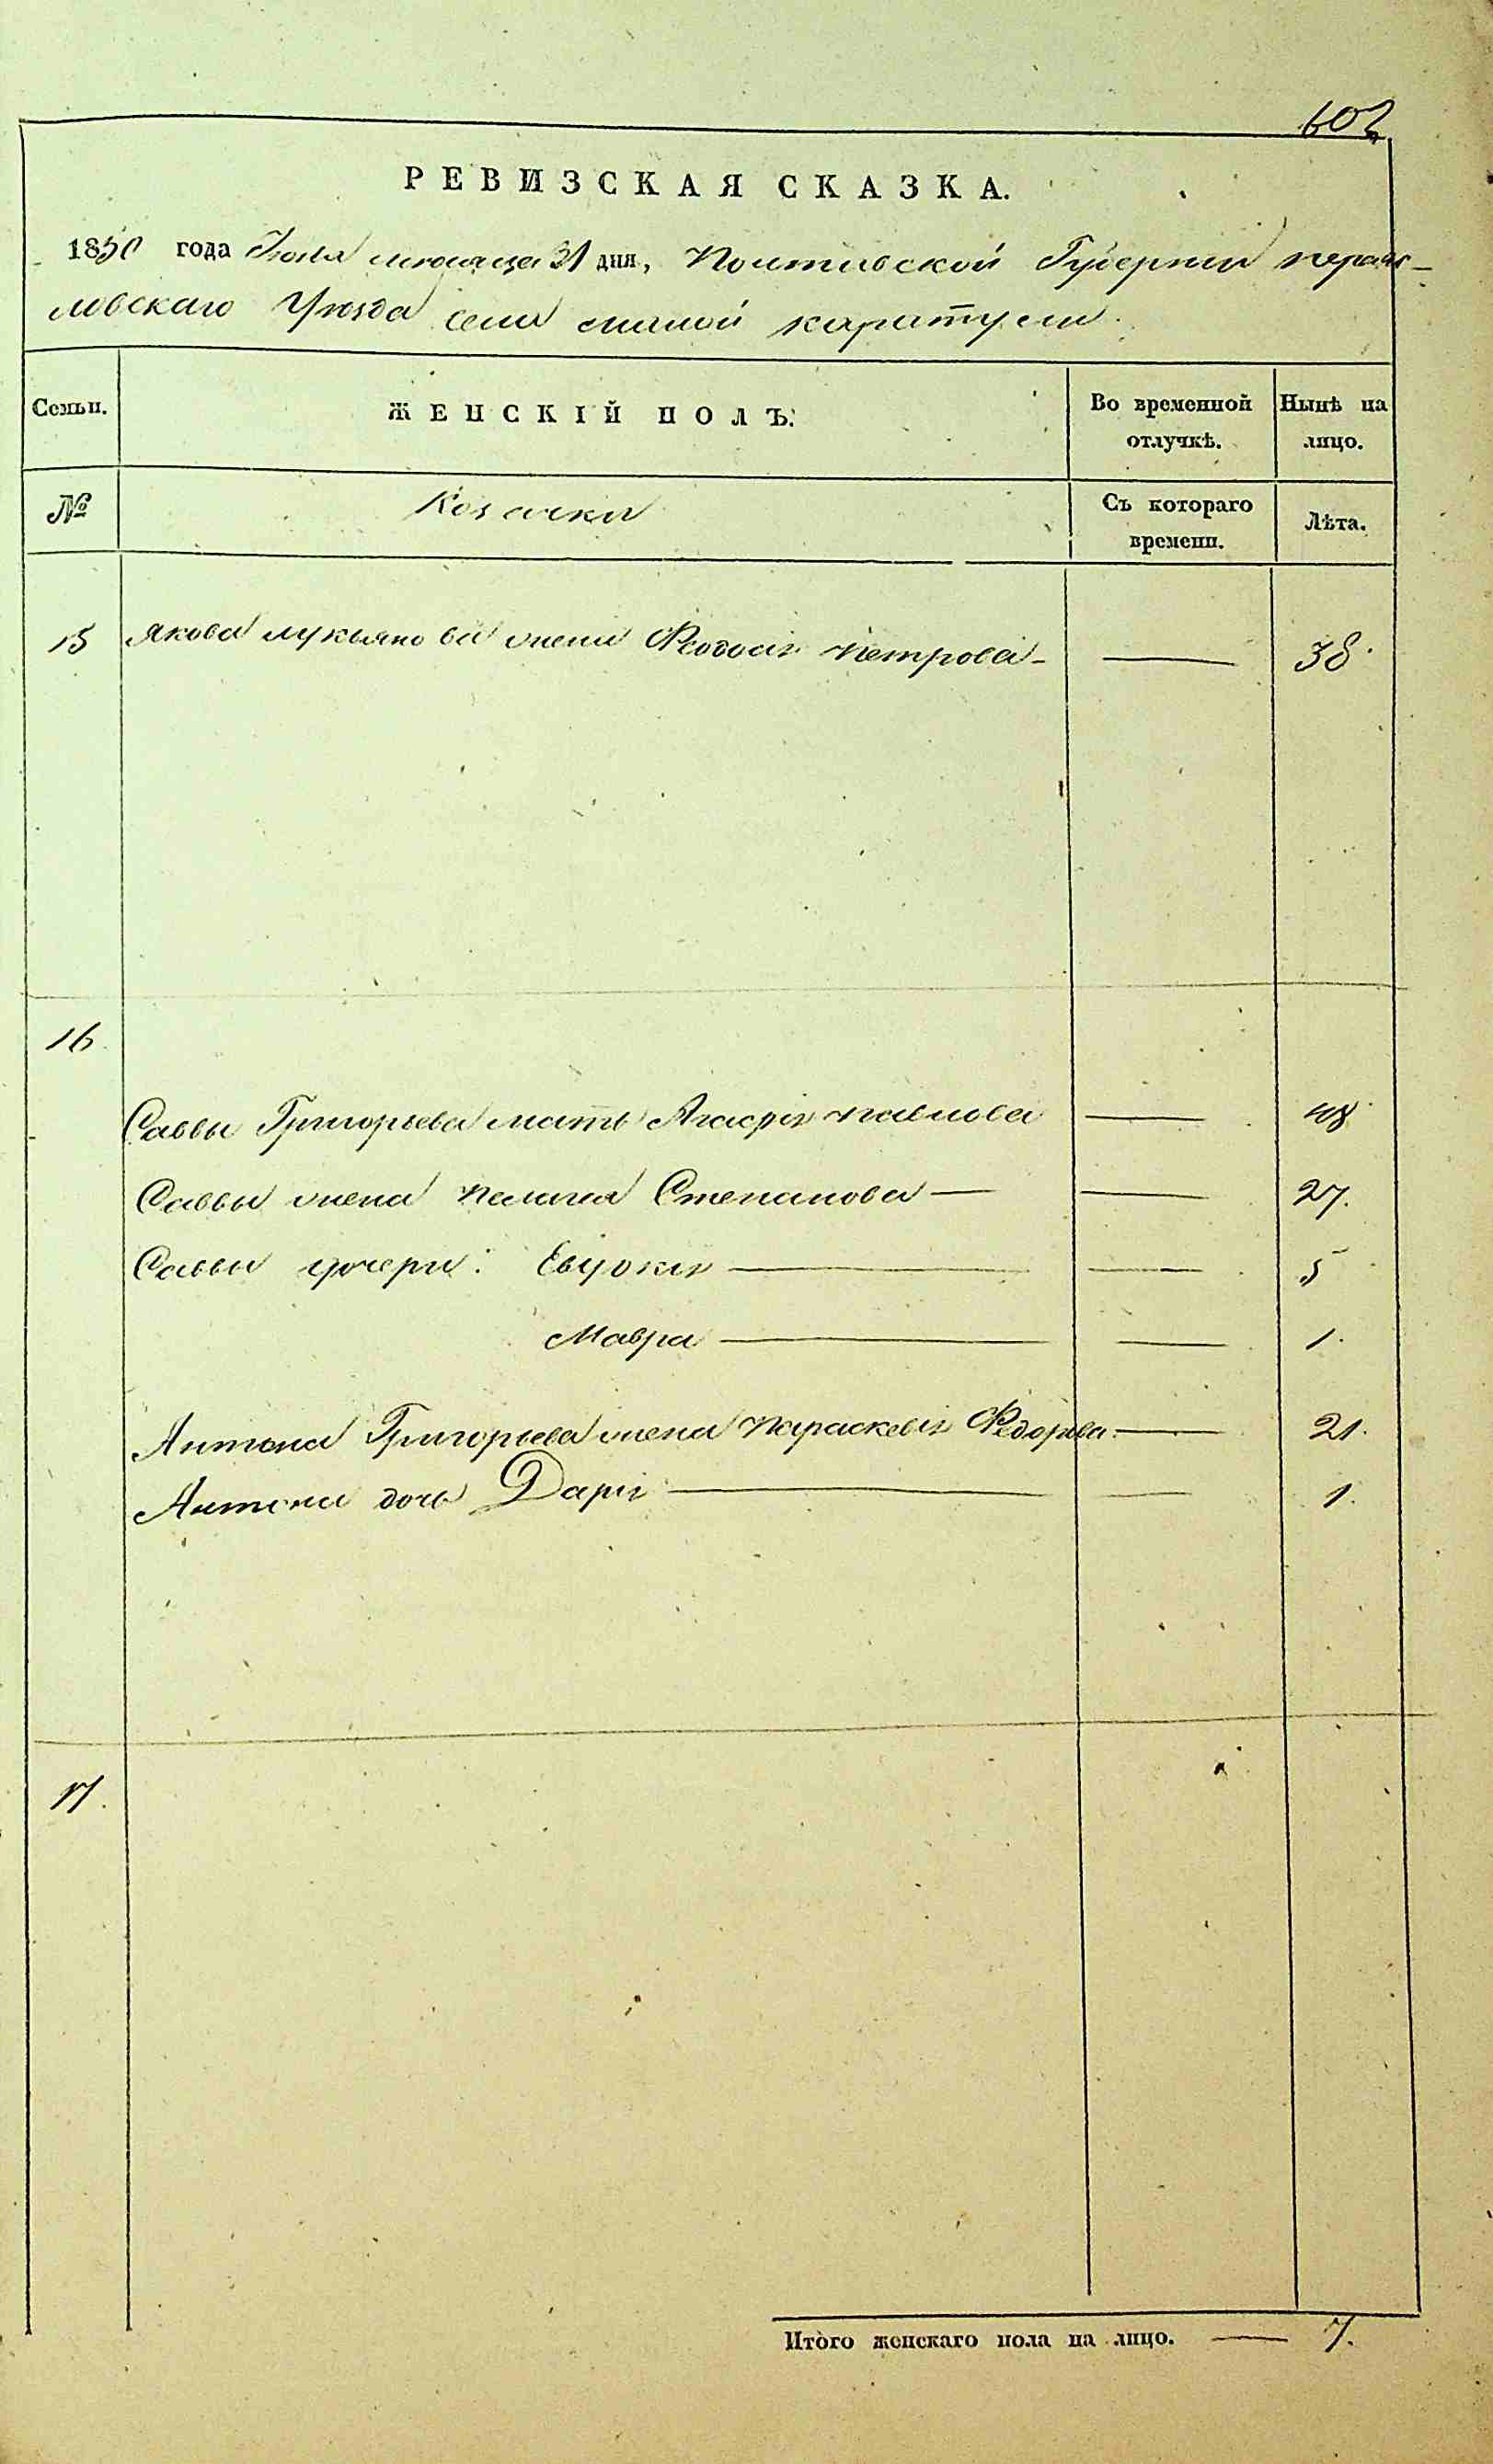 602
РЕВИЗСКАЯ СКАЗКА.
1850 года Июля месяца 31 дня, Полтавской Губернии переяс-
ловскаго Уезда села малой каратули.
Семьи. ЖЕНСКІЙ ПОЛЪ. Во временной отлучкѣ. Нынѣ на лицо.
№ Козачки Съ котораго времени. Лѣта.
15 Якова лукьянова жена Феодосія петрова — — 38
16
Саввы Григорьева мать Агафія павлова — 48
Саввы жена пелагея Степанова — — 27.
Саввы дочери: Евдокія — — 5
Мавра — — 1.
Антона Григорьева жена параскевія Федорова — 21.
Антона дочь Дарія — — 1.
17.
Итого женскаго пола на лицо. — 7.